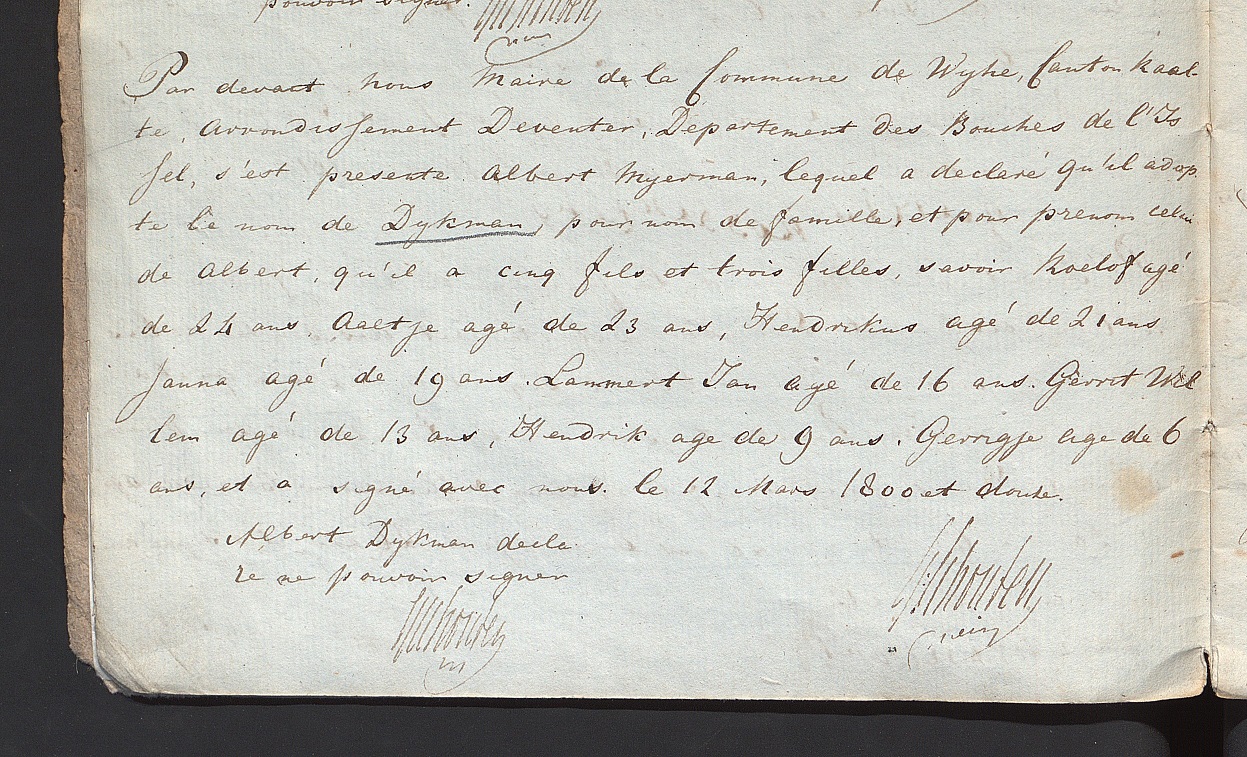 pouvoir signer.
Par devact nous Maire de la Commune de Wyhe, Canton Raal-
te, Arrondissement Deventer, Departement des Bouches de l'Is
sel, s'est presente Albert Myerman, lequel a declaré qu'il adop
te le nom de Dykman, pour nom de famille, et pour prenom celui
de Albert, qu'il a cinq fils et trois filles, savoir Roelof agé
de 24 ans, Aaltje agé de 23 ans, Hendrikus agé de 21 ans
Janna agé de 19 ans. Lammert Jan agé de 16 ans. Gerrit Wil
lem agé de 13 ans, Hendrik age de 9 ans. Gerrigje age de 6
ans, et a signé avec nous. le 12 Mars 1800 et douze.
Albert Dykman decla
re ne pouvoir signer